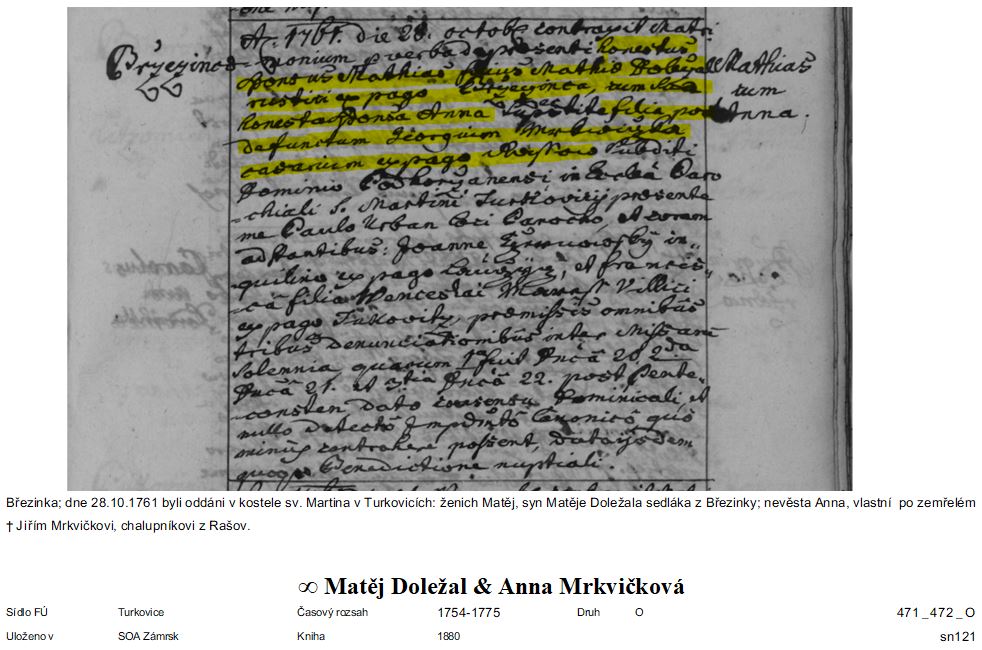 A. 1761. die 28. octobr. contraxit Matri-
Brzezinca
-monium p verba de presenti honestus
Mathias
Sponsus Mathias filius Mathiæ Dolezal
rustici ex pago Brzezinca, cum sua
cum
honesta Sponsa Anna filia post
Anna.
defunctum Georgium Mrkwiczka
casarium ex pago Subditi
Dominio in Eccleā Paro
-chiali S. Martini Turkovicij presente
me Paulo Urban loci Parocho, et coram
adstantibus: Joanne in-
quilino ex pago et Francis-
-ca filia Wenceslai Villici
ex pago premissis omnibus
tribus denunciationibus inter Missarū
Solemnia, quarum 1ma fuit Dncā 20. 2da
Dncā 21. et 3tia Dncā 22. post Pente-
-costen dato consensu Dominicali, et
nullo detecto Impdmto Canonico quo
minus contrahere possent, data ijsdem
quoqȝ Benedictione nuptiali.
Březinka; dne 28.10.1761 byli oddáni v kostele sv. Martina v Turkovicích: ženich Matěj, syn Matěje Doležala sedláka z Březinky; nevěsta Anna, vlastní po zemřelém
† Jiřím Mrkvičkovi, chalupníkovi z Rašov.
∞ Matěj Doležal & Anna Mrkvičková
Sídlo FÚ Turkovice Časový rozsah 1754-1775 Druh O 471_472_O
Uloženo v SOA Zámrsk Kniha 1880 sn121